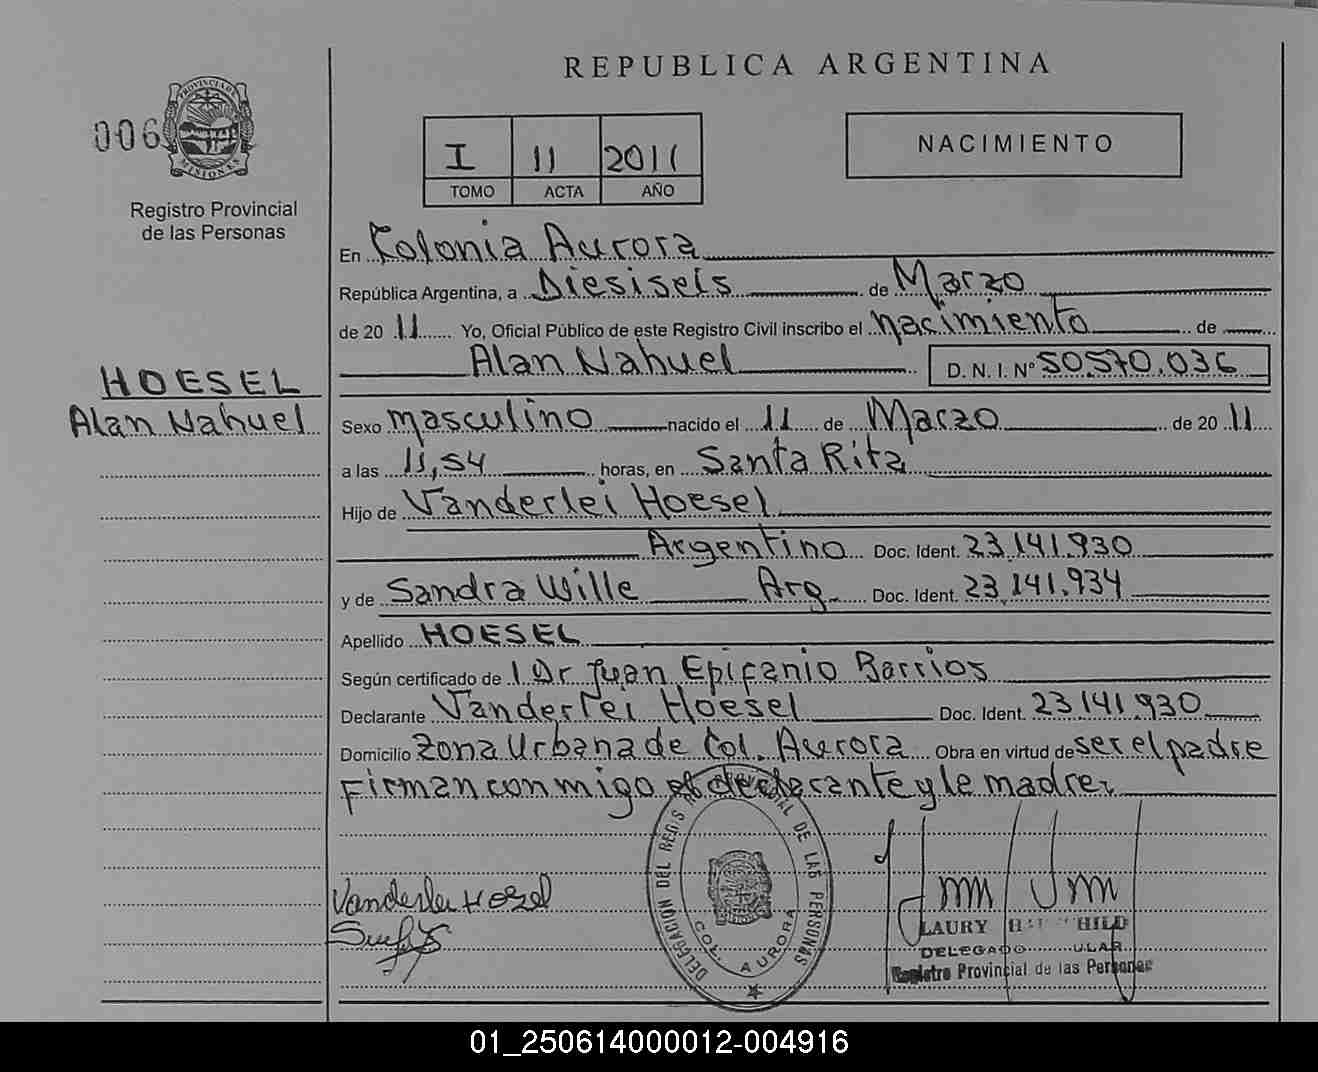 REPUBLICA ARGENTINA
006
PROVINCIA DE MISIONES
Registro Provincial
de las Personas
I 11 2011
TOMO ACTA AÑO
NACIMIENTO
En Colonia Aurora
República Argentina, a Diesiseis de Marzo
de 20 11 Yo, Oficial Público de este Registro Civil inscribo el nacimiento de
Alan Nahuel D. N. I. Nº 50.570.036
HOESEL
Alan Nahuel
Sexo masculino nacido el 11 de Marzo de 20 11
a las 11,54 horas, en Santa Rita
Hijo de Vanderlei Hoesel
Argentino Doc. Ident. 23.141.930
y de Sandra Wille Arg. Doc. Ident. 23.141.934
Apellido HOESEL
Según certificado de 1 Dr Juan Epifanio Barrios
Declarante Vanderlei Hoesel Doc. Ident. 23.141.930
Domicilio Zona Urbana de Col. Aurora Obra en virtud de ser el padre
Firman conmigo el declarante y le madre
Vanderlei Hosel
DELEGACION DEL REGIS PROVINCIAL DE LAS PERSONAS
COL. AURORA
LAURY
DELEGADO
Registro Provincial de las Personas
01_250614000012-004916